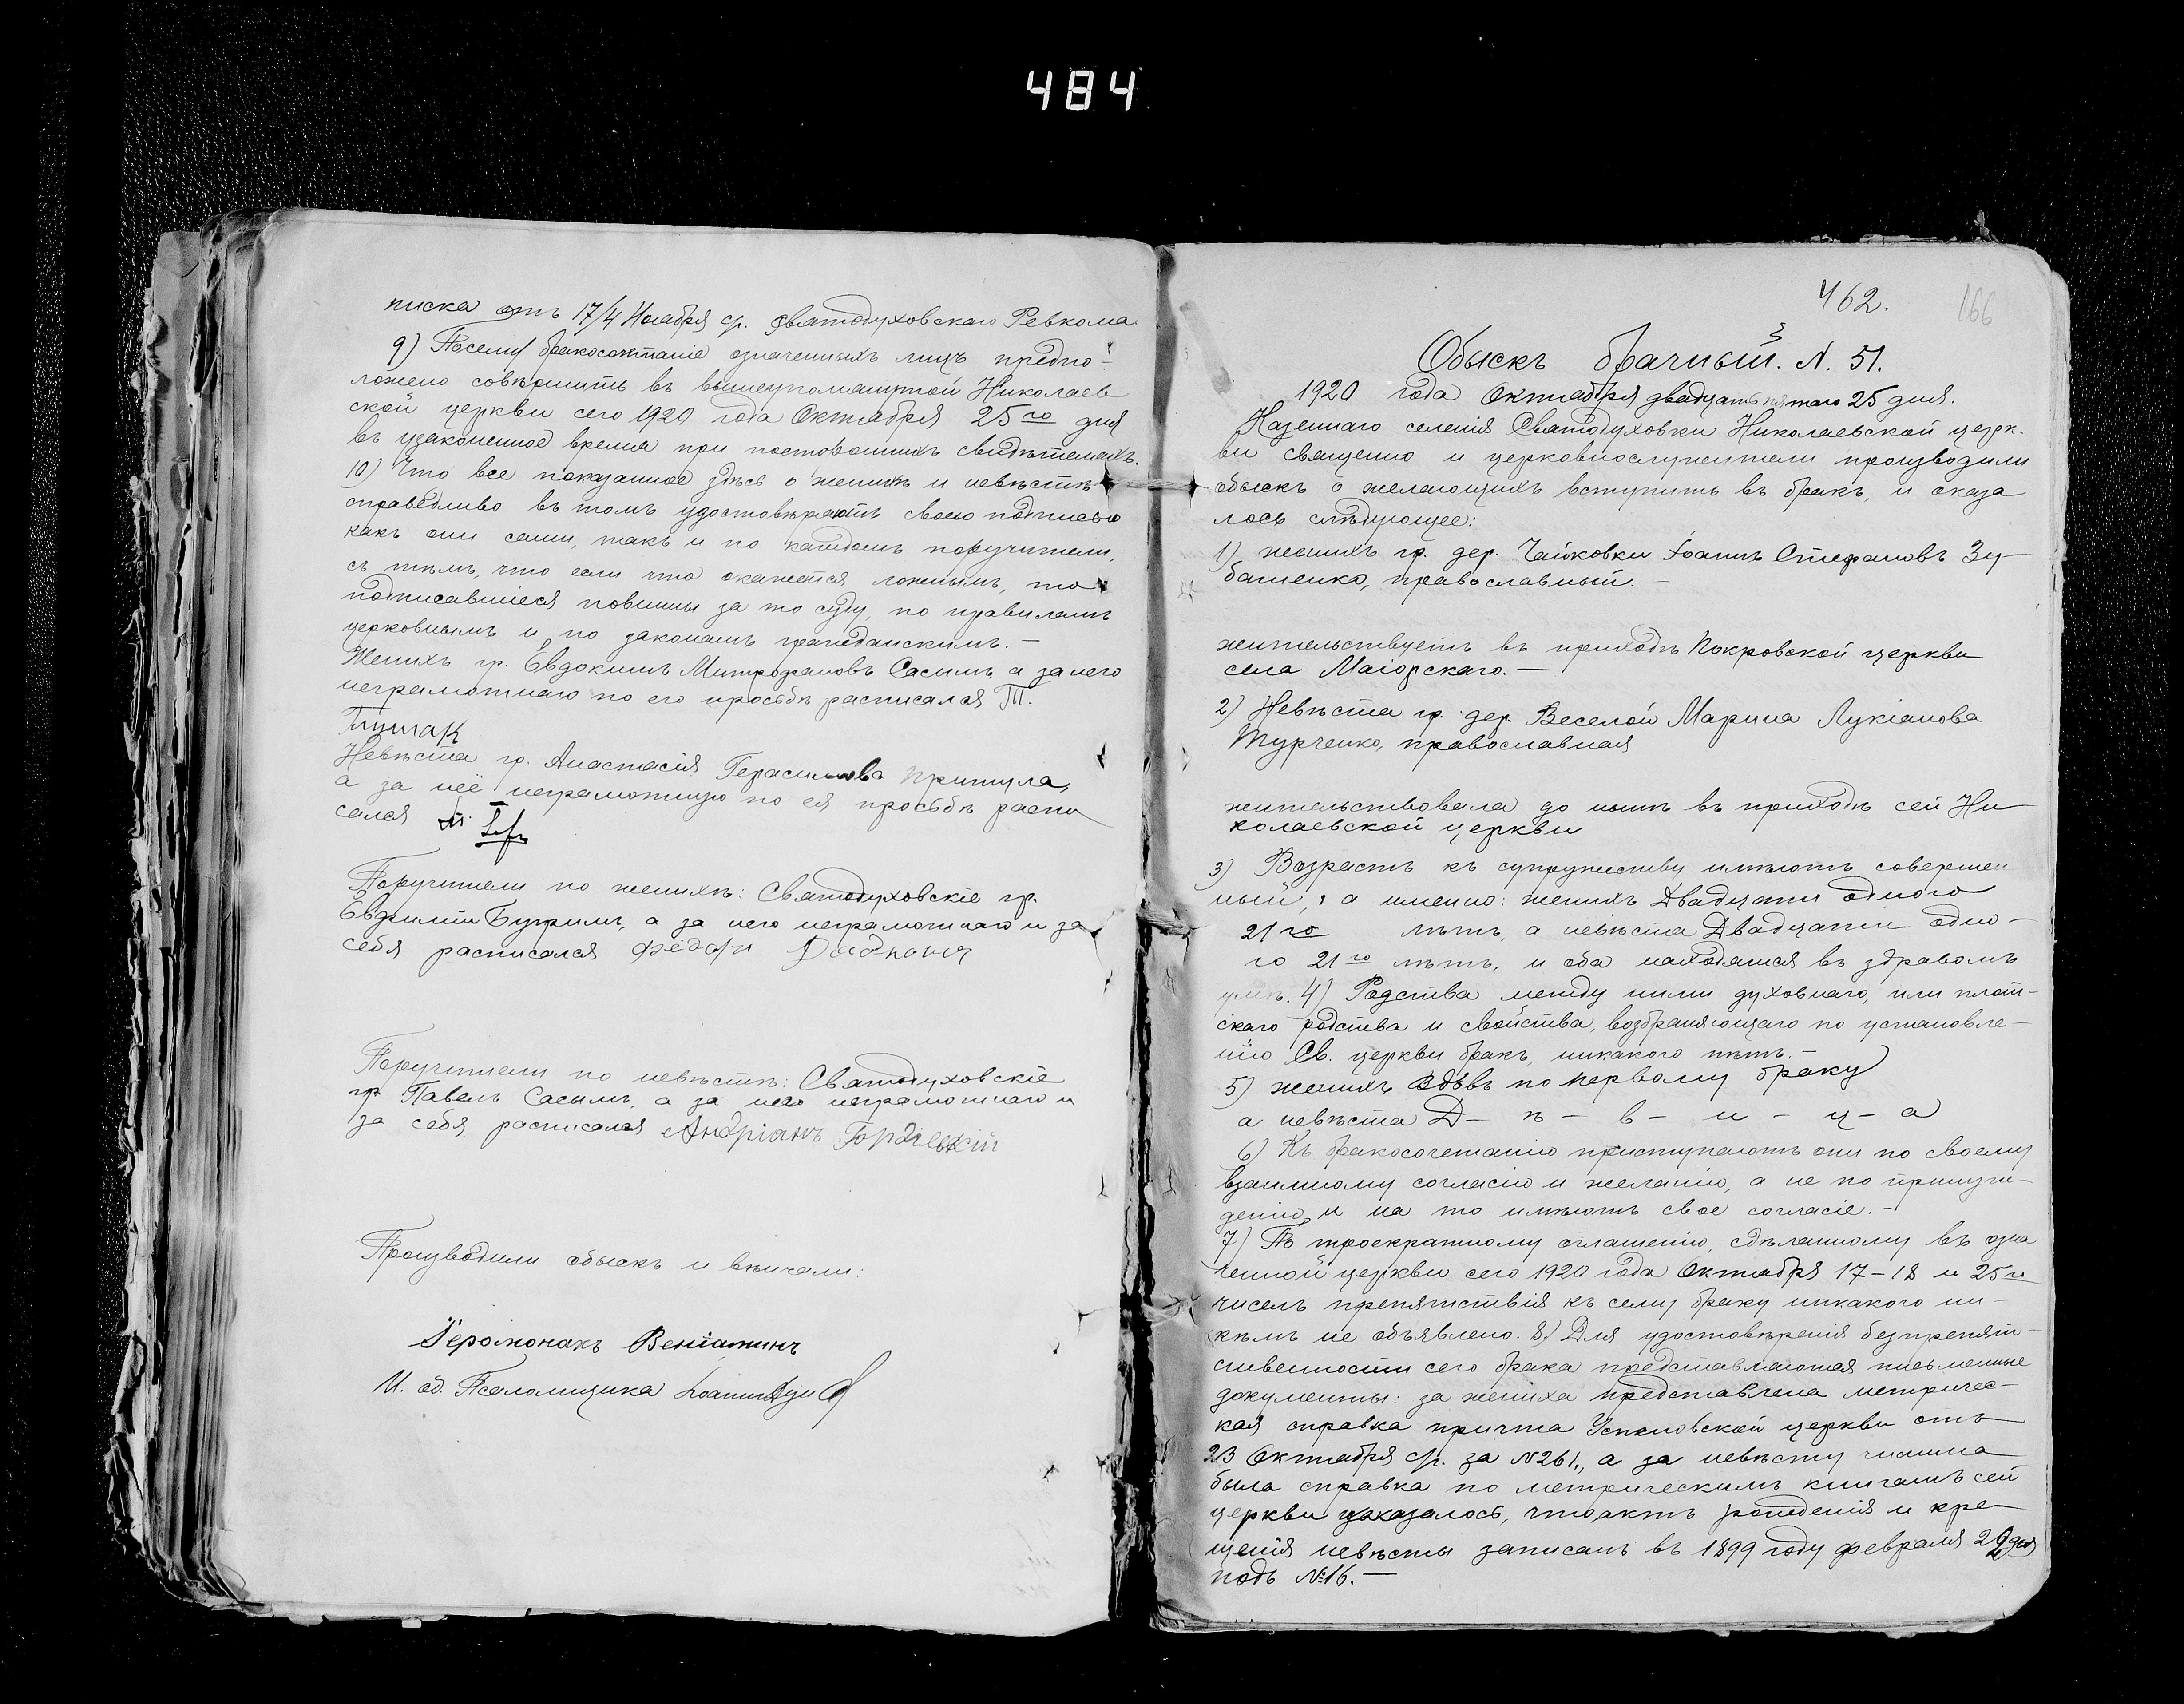 484
писка отъ 17/4 Ноября с/г. Святодуховскаго Ревкома
9) Посему бракосочтаніе означенныхъ лицъ предпо-
ложено совершить въ вышеупомянутой Николаев
ской церкви сего 1920 года Октября 25го дня
въ узаконенное время при постороннихъ свидѣтеляхъ.
10) Что все показанное здѣсь о женихѣ и невѣстѣ
справедливо въ томъ удостовѣряютъ своею подписью
какъ они сами, такъ и по каждомъ поручители,
съ тѣмъ, что если что окажется ложнымъ, то
подписавшіеся повинны за то суду, по правиламъ
церковнымъ и по законамъ гражданскимъ. –
Женихъ гр. Евдокимъ Митрофановъ Сасымъ а за него
неграмотнаго по его просьбѣ расписался Т.
Невѣста гр. Анастасія Герасимова Притула,
а за неё неграмотную по ея просьбѣ распи
сался
Поручители по женихѣ: Святодуховскіе гр.
Евфимій Бугримъ, а за него неграмотнаго и за
себя расписался Фёдоръ
Поручители по невѣстѣ: Святодуховскіе
гр. Павелъ Сасымъ, а за него неграмотнаго и
за себя расписался Андріанъ
Производили обыскъ и вѣнчали:
Іеромонахъ Веніаминъ
И. об. Псаломщика Іоаннъ
462.
166
Обыскъ брачный. N. 51.
1920 года Октября двадцать пятаго 25 дня.
Казеннаго селенія Святодуховки Николаевской церк-
ви священно и церковнослужители производили
обыскъ о желающихъ вступить въ бракъ, и оказа
лось слѣдующее:
1) женихъ гр. дер. Чайковки Іоаннъ Стефановъ Зу-
башенко, православный. –
жительствуетъ въ приходѣ Покровской церкви
села Маіорскаго. –
2) Невѣста гр. дер. Веселой Марина Лукіанова
Турченко, православная
жительствовала до нынѣ въ приходѣ сей Ни
колаевской церкви
3) Возрастъ къ супружеству имѣютъ совершен
ный, а именно: женихъ Двадцати одного
21го лѣтъ, а невѣста Двадцати одно-
го 21го лѣтъ, и оба находятся въ здравомъ
умѣ. 4) Родства между ними духовнаго, или плот-
скаго родства и свойства, возбраняющаго по установле-
нію Св. церкви бракъ, никакого нѣтъ. –
5) женихъ вдовъ по первому браку
а невѣста Д – ѣ – в – и – ц – а
6) Къ бракосочетанію приступаютъ они по своему
взаимному согласію и желанію, а не по принуж-
денію, и на то имѣютъ свое согласіе. –
7) По троекратному оглашенію, сдѣланному въ озна
ченной церкви сего 1920 года Октября 17–18 и 25го
чиселъ препятствія къ сему браку никакого ни-
кѣмъ не объявлено. 8) Для удостовѣренія безпрепят-
ственности сего брака представляются письменные
документы: за жениха представлена метричес-
кая справка причта Успеновской церкви отъ
23 Октября с/г. за N261., а за невѣсту чинима
была справка по метрическимъ книгамъ сей
церкви оказалось, что актъ рожденія и кре
щенія невѣсты записанъ въ 1899 году февраля
подъ №16. –